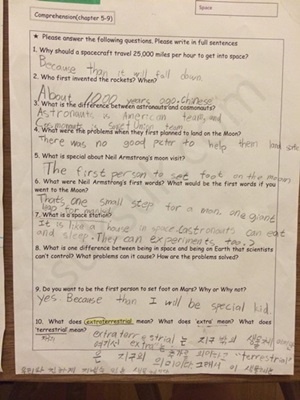 Space
Comprehension(chapter 5-9)
★ Please answer the following questions. Please write in full sentences
1. Why should a spacecraft travel 25,000 miles per hour to get into space?
Because than it will fall down.
2. Who first invented the rockets? When?
About 1000 years ago. Chinese
3. What is the difference between astronauts and cosmonauts?
Astronauts is American team, and
Cosmonauts is Soviet Union team.
4. What were the problems when they first planned to land on the Moon?
There was no good to help them land safe
5. What is special about Neil Armstrong's moon visit?
The first person to set foot on the moon.
6. What were Neil Armstrong's first words? What would be the first words if you
went to the Moon?
Thats one small step for a man, one giant
leap for
7. What is a space station?
It is like a house in space. Eastronauts can eat
and sleep. They can experiments too.
8. What is one difference between being in space and being on Earth that scientists
can't control? What problems can it cause? How are the problems solved?
9. Do you want to be the first person to set foot on Mars? Why or Why not?
yes. Because than I will be special kid.
10. What does extraterrestrial mean? What does 'extra' mean? What does
'terrestrial' mean?
는 지구밖의
여기서 extra는 이라하고 "terrestrial"
은 지구의 의미이다 그래서 이